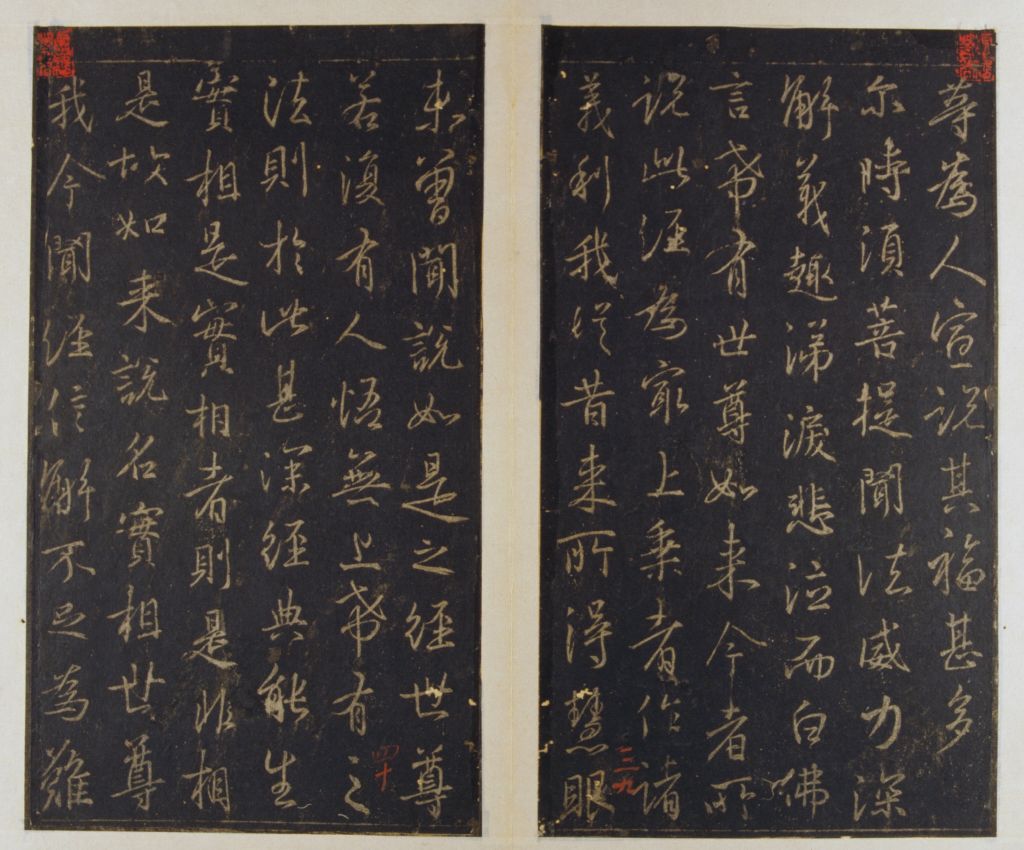 等為人宣說其福甚多
尒時須菩提聞法威力深
解義趣涕淚悲泣而白佛
言希有世尊如来今者所
說此經為最上乘者作諸
三九
義利我從昔来所得慧眼
未曾聞說如是之經世尊
四十
若復有人悟無上希有之
法則於此甚深經典能生
實相是實相者則是非相
是故如来說名實相世尊
我今聞經信解不足為難